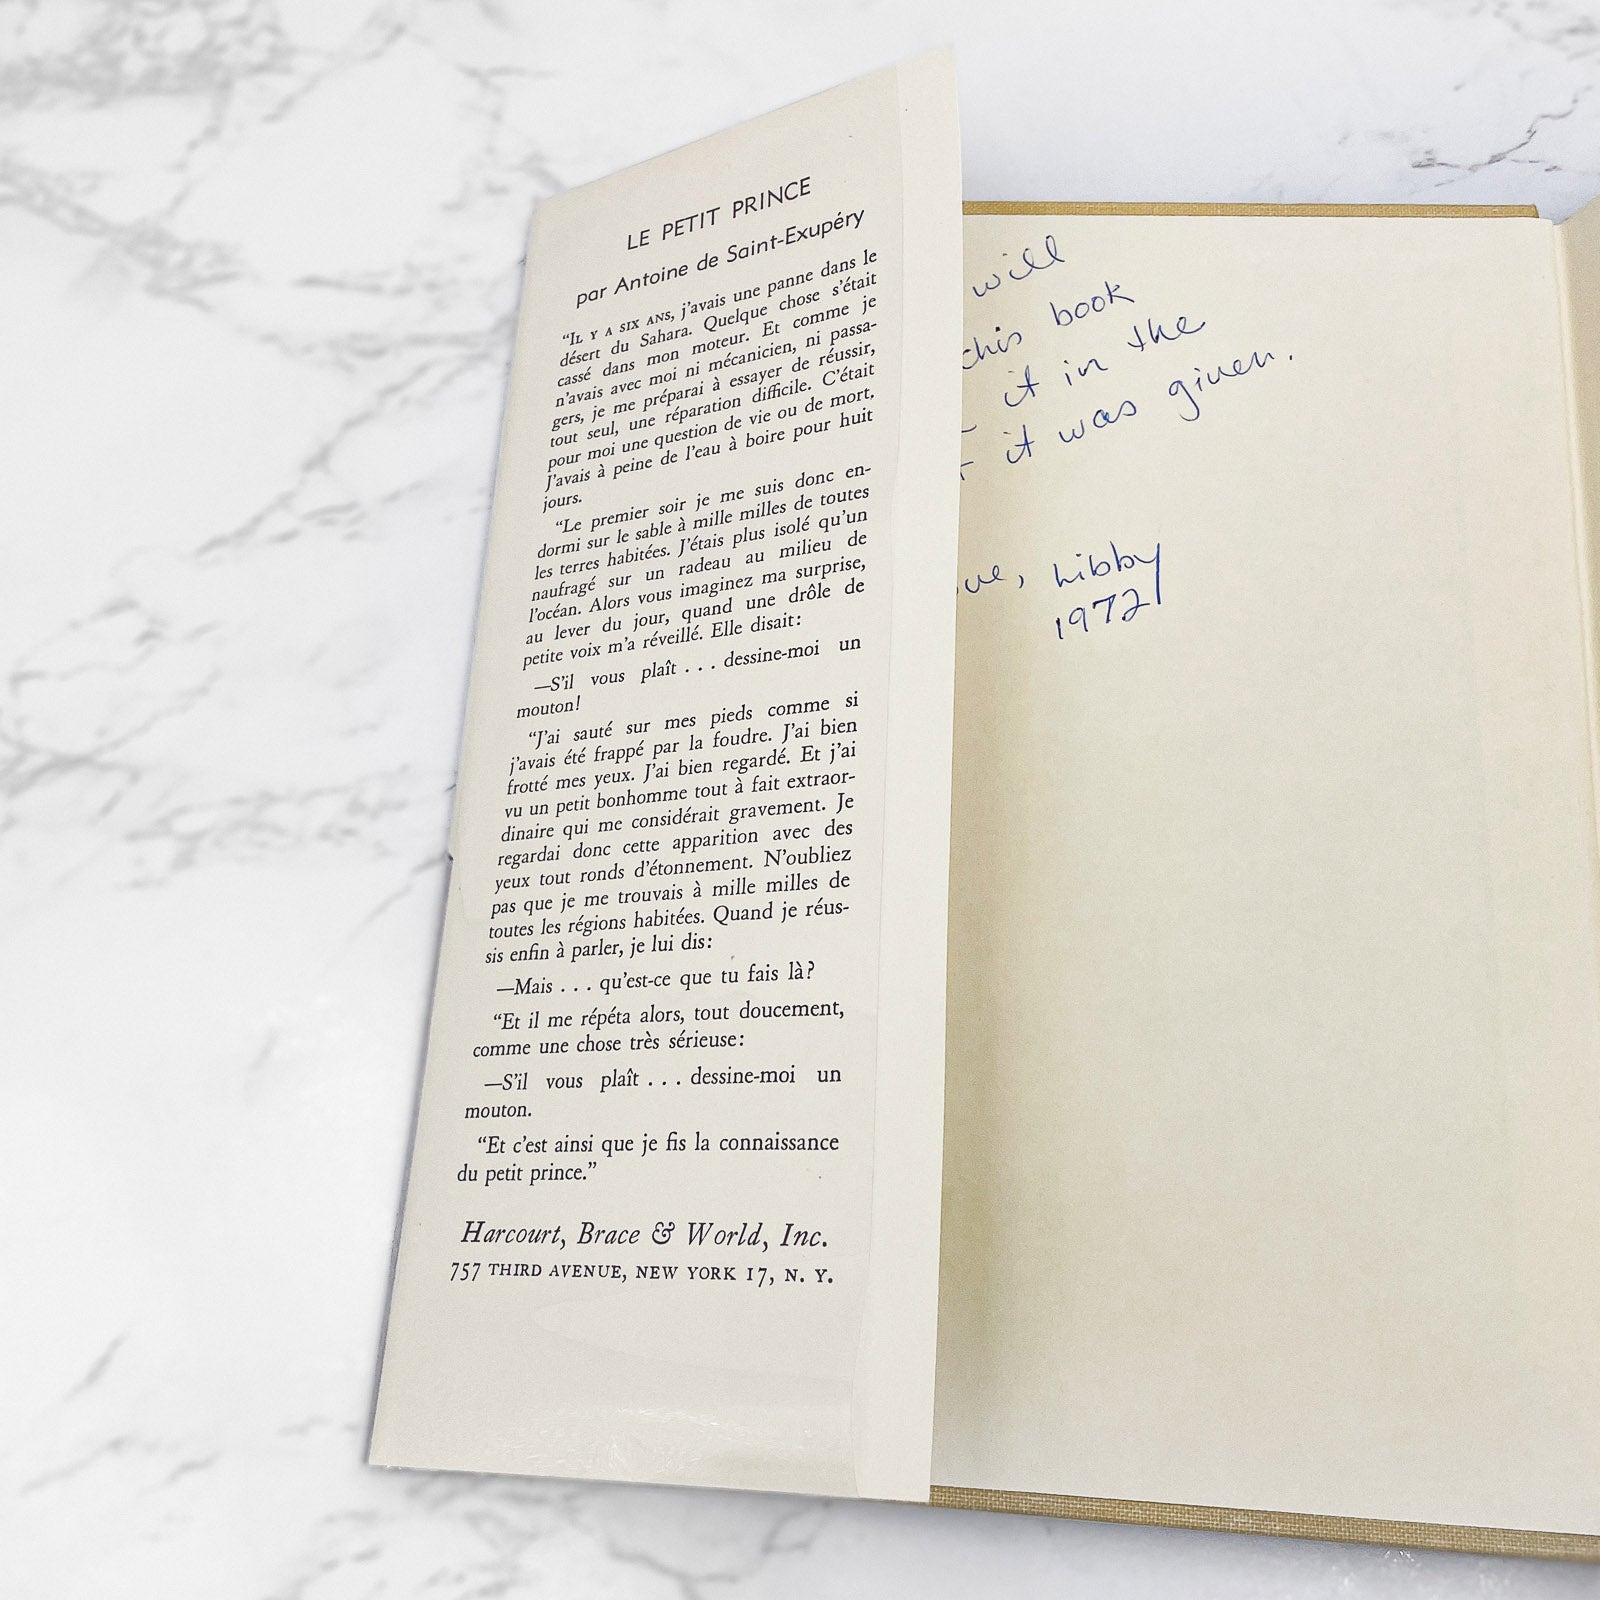 LE PETIT PRINCE
par Antoine de Saint-Exupéry
“IL Y A SIX ANS, j’avais une panne dans le
désert du Sahara. Quelque chose s’était
cassé dans mon moteur. Et comme je
n’avais avec moi ni mécanicien, ni passa-
gers, je me préparai à essayer de réussir,
tout seul, une réparation difficile. C’était
pour moi une question de vie ou de mort,
J’avais à peine de l’eau à boire pour huit
jours.
“Le premier soir je me suis donc en-
dormi sur le sable à mille milles de toutes
les terres habitées. J’étais plus isolé qu’un
naufragé sur un radeau au milieu de
l’océan. Alors vous imaginez ma surprise,
au lever du jour, quand une drôle de
petite voix m’a réveillé. Elle disait:
—S’il vous plaît . . . dessine-moi un
mouton!
“J’ai sauté sur mes pieds comme si
j’avais été frappé par la foudre. J’ai bien
frotté mes yeux. J’ai bien regardé. Et j’ai
vu un petit bonhomme tout à fait extraor-
dinaire qui me considérait gravement. Je
regardai donc cette apparition avec des
yeux tout ronds d’étonnement. N’oubliez
pas que je me trouvais à mille milles de
toutes les régions habitées. Quand je réus-
sis enfin à parler, je lui dis:
—Mais . . . qu’est-ce que tu fais là?
“Et il me répéta alors, tout doucement,
comme une chose très sérieuse:
—S’il vous plaît . . . dessine-moi un
mouton.
“Et c’est ainsi que je fis la connaissance
du petit prince.”
Harcourt, Brace & World, Inc.
757 THIRD AVENUE, NEW YORK 17, N. Y.
will
this book
it in the
it was given.
Libby
1972